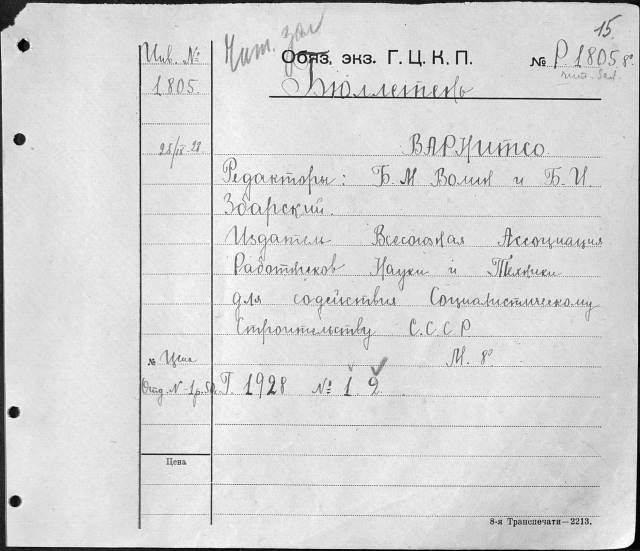 15.
Чит. зал
Инв. №
Обяз. экз. Г. Ц. К. П.
№ Р 1805 8°
1805.
Бюллетень
чит. зал.
25/IX-28
ВАРНИТСО
Редакторы: Б. М Волин и Б. И.
Збарский.
Издатель Всесоюзная Ассоциация
Работников Науки и Техники
для содействия Социалистическому
Строительству С.С.С Р
М. 8°
№ Цена
Отд. N - 1 р. 50. Г. 1928 № 1 2
Цена
8-я Транспечати—2213.